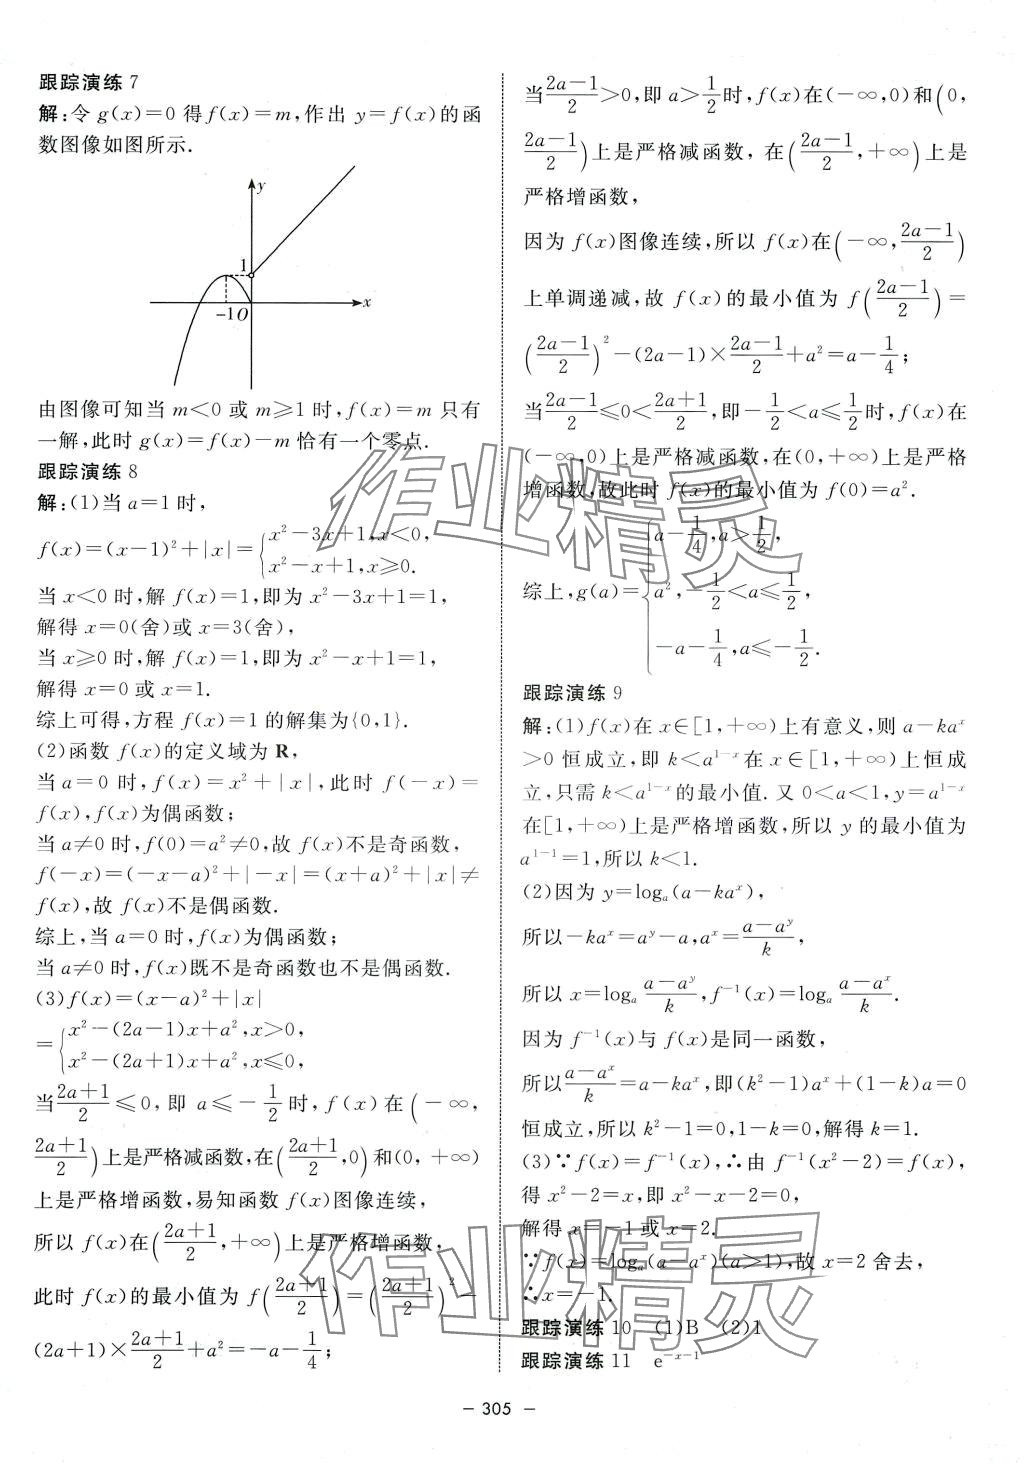 跟踪演练 7
解:令 g(x)=0 得 f(x)=m,作出 y=f(x)的函
数图像如图所示.
y
1
-1 O x
由图像可知当 m<0 或 m≥1 时,f(x)=m 只有
一解,此时 g(x)=f(x)-m 恰有一个零点.
跟踪演练 8
解:(1)当 a=1 时,
f(x)=(x-1)²+|x|={x²-3x+1,x<0,
x²-x+1,x≥0.
当 x<0 时,解 f(x)=1,即为 x²-3x+1=1,
解得 x=0(舍)或 x=3(舍),
当 x≥0 时,解 f(x)=1,即为 x²-x+1=1,
解得 x=0 或 x=1.
综上可得,方程 f(x)=1 的解集为{0,1}.
(2)函数 f(x)的定义域为 R,
当 a=0 时,f(x)=x²+|x|,此时 f(-x)=
f(x),f(x)为偶函数;
当 a≠0 时,f(0)=a²≠0,故 f(x)不是奇函数,
f(-x)=(-x-a)²+|-x|=(x+a)²+|x|≠
f(x),故 f(x)不是偶函数.
综上,当 a=0 时,f(x)为偶函数;
当 a≠0 时,f(x)既不是奇函数也不是偶函数.
(3)f(x)=(x-a)²+|x|
={x²-(2a-1)x+a²,x>0,
x²-(2a+1)x+a²,x≤0,
当(2a+1)/2≤0,即 a≤-1/2时,f(x)在(-∞,
(2a+1)/2)上是严格减函数,在((2a+1)/2,0)和(0,+∞)
上是严格增函数,易知函数 f(x)图像连续,
所以 f(x)在((2a+1)/2,+∞)上是严格增函数,
此时 f(x)的最小值为 f((2a+1)/2)=((2a+1)/2)²-
(2a+1)×(2a+1)/2+a²=-a-1/4;
当(2a-1)/2>0,即 a>1/2时,f(x)在(-∞,0)和(0,
(2a-1)/2)上是严格减函数,在((2a-1)/2,+∞)上是
严格增函数,
因为 f(x)图像连续,所以 f(x)在(-∞,(2a-1)/2)
上单调递减,故 f(x)的最小值为 f((2a-1)/2)=
((2a-1)/2)²-(2a-1)×(2a-1)/2+a²=a-1/4;
当(2a-1)/2≤0<(2a+1)/2,即-1/2<a≤1/2时,f(x)在
(-∞,0)上是严格减函数,在(0,+∞)上是严格
增函数,故此时 f(x)的最小值为 f(0)=a².
综上,g(a)={a-1/4,a>1/2,
a²,-1/2<a≤1/2,
-a-1/4,a≤-1/2.
跟踪演练 9
解:(1)f(x)在 x∈[1,+∞)上有意义,则 a-kaˣ
>0 恒成立,即 k<a¹⁻ˣ在 x∈[1,+∞)上恒成
立,只需 k<a¹⁻ˣ的最小值.又 0<a<1,y=a¹⁻ˣ
在[1,+∞)上是严格增函数,所以 y 的最小值为
a¹⁻¹=1,所以 k<1.
(2)因为 y=logₐ(a-kaˣ),
所以-kaˣ=aʸ-a,aˣ=(a-aʸ)/k,
所以 x=logₐ (a-aʸ)/k,f⁻¹(x)=logₐ (a-aˣ)/k.
因为 f⁻¹(x)与 f(x)是同一函数,
所以(a-aˣ)/k=a-kaˣ,即(k²-1)aˣ+(1-k)a=0
恒成立,所以 k²-1=0,1-k=0,解得 k=1.
(3)∵f(x)=f⁻¹(x),∴由 f⁻¹(x²-2)=f(x),
得 x²-2=x,即 x²-x-2=0,
解得 x=-1 或 x=2.
∵f(x)=logₐ(a-aˣ)(a>1),故 x=2 舍去,
∴x=-1.
跟踪演练 10 (1)B (2)1
跟踪演练 11 e⁻ˣ⁻¹
- 305 -
作业精灵
作业精灵